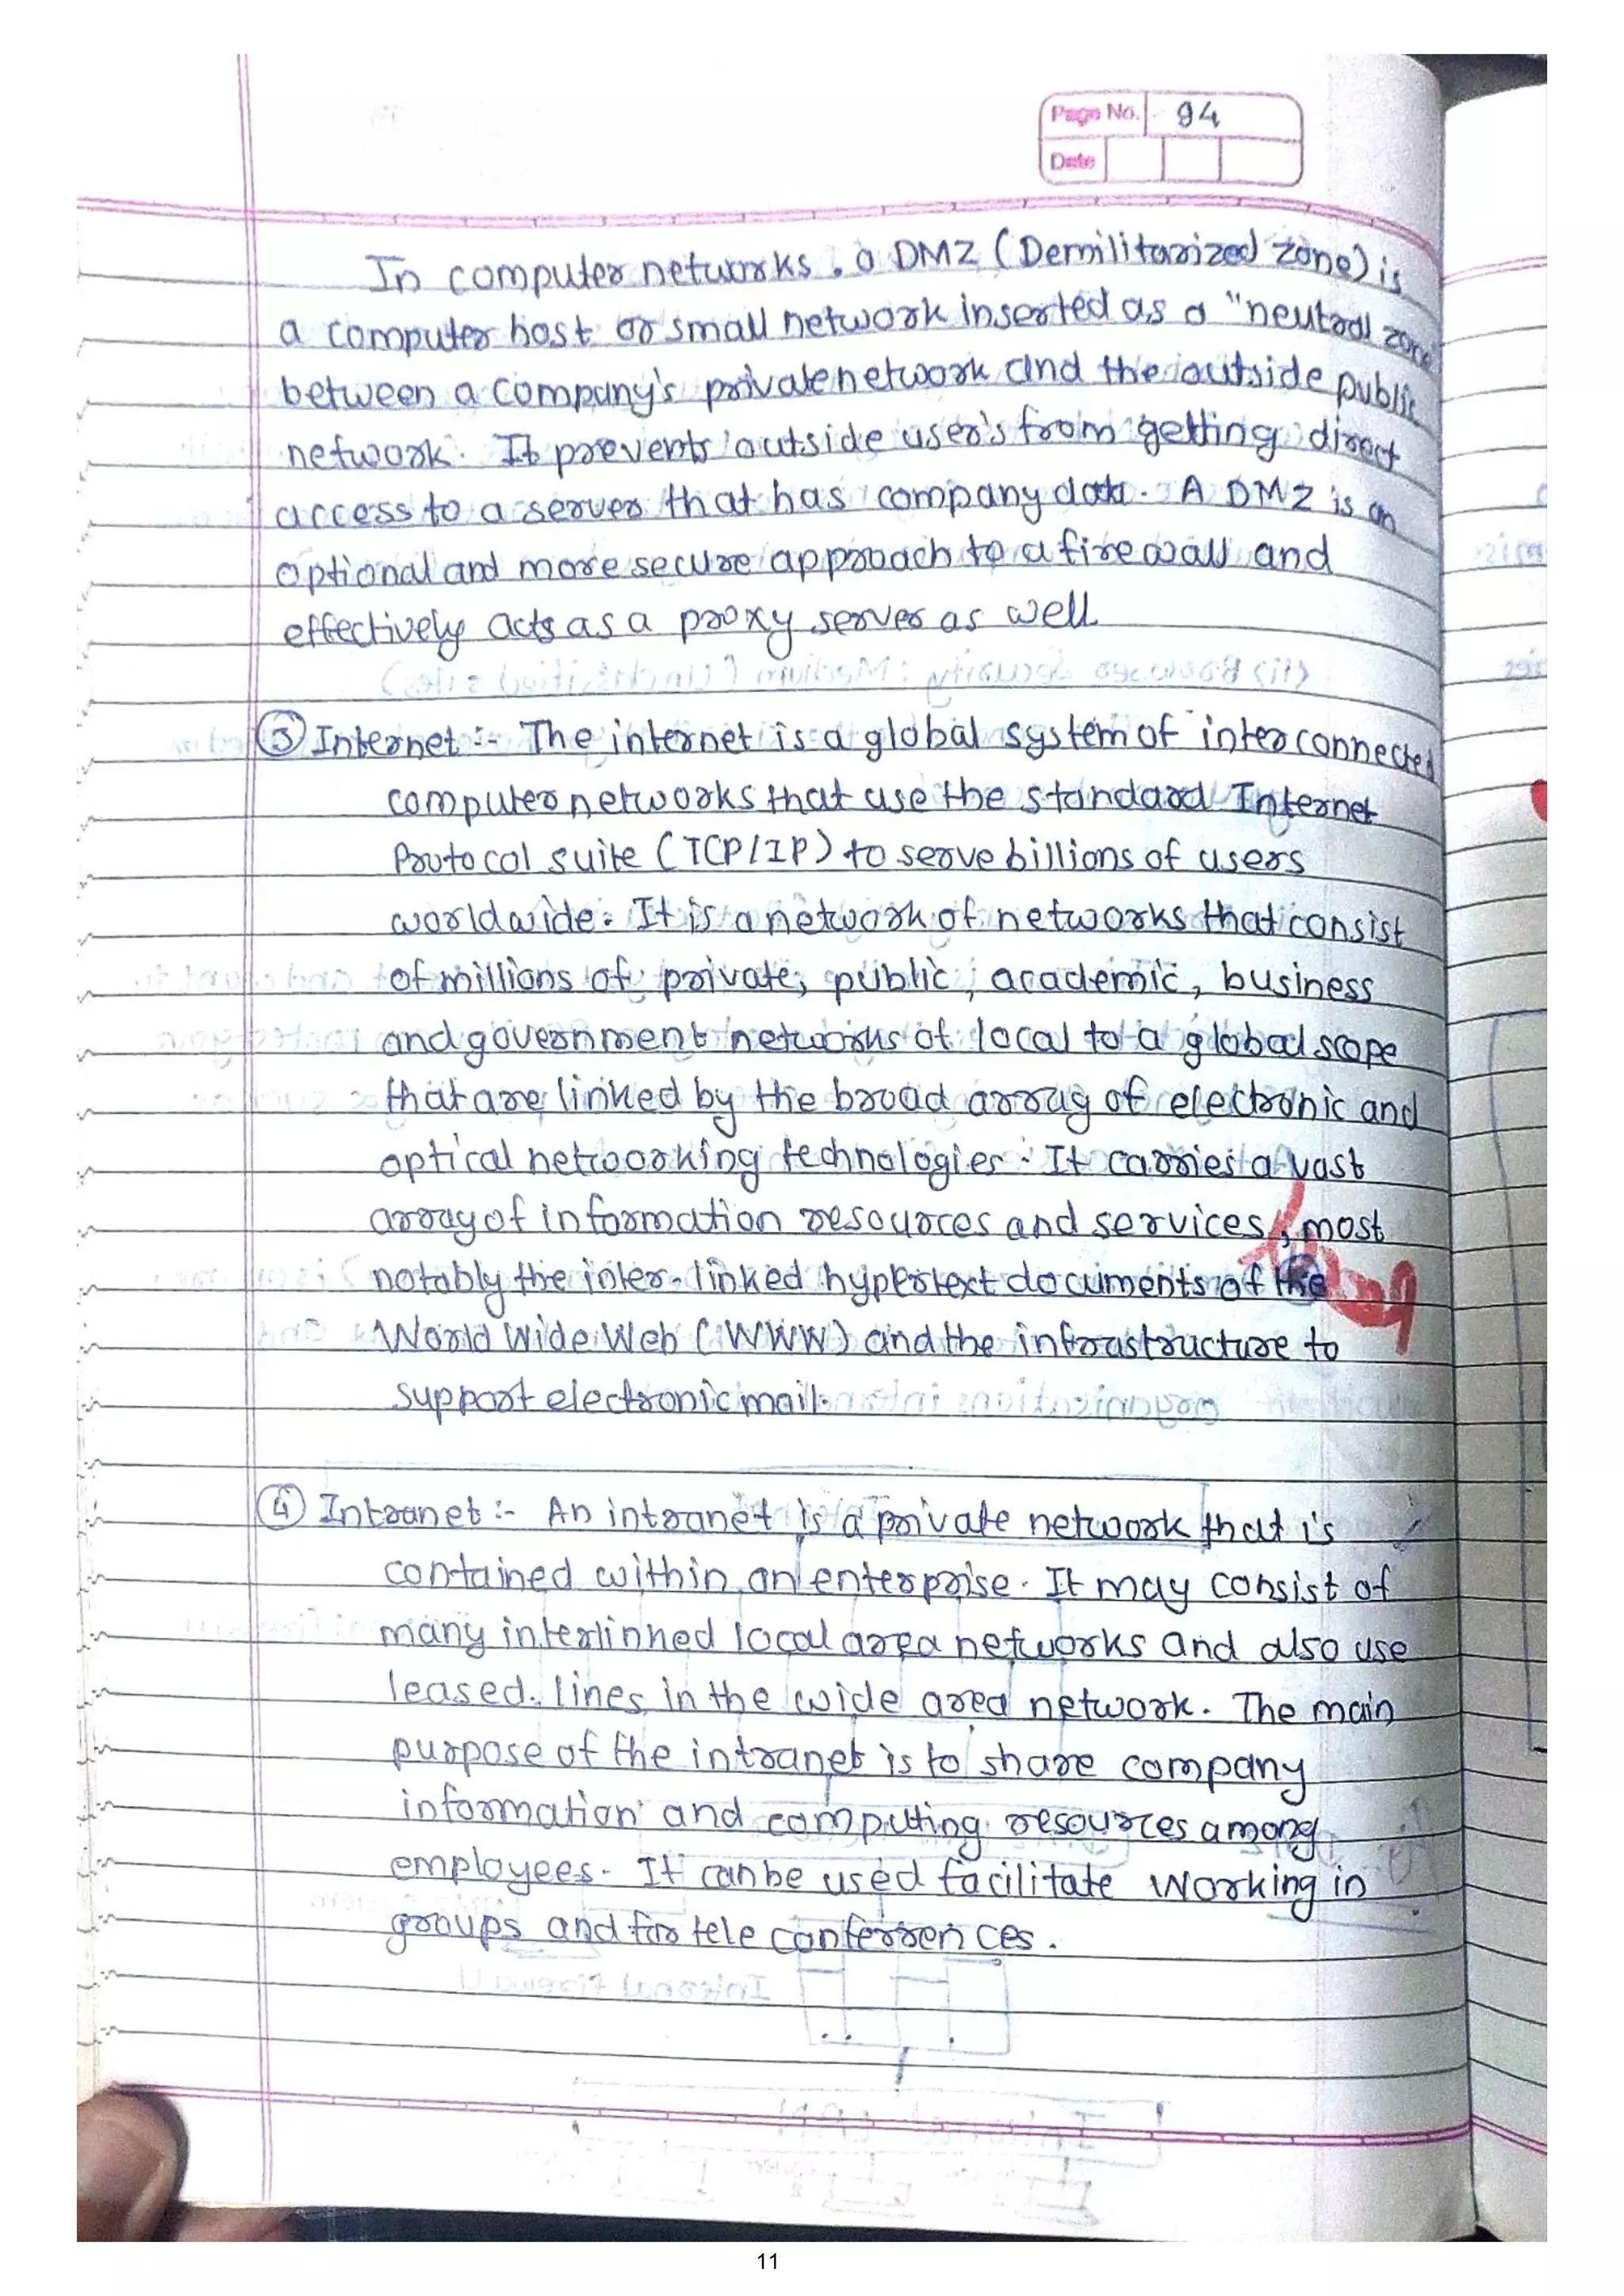 Page No. 94
Date
In computer networks, a DMZ (Demilitarized zone) is
a computer host or small network inserted as a "neutral zone"
between a company's private network and the outside public
network. It prevents outside user's from getting direct
access to a server that has company data. A DMZ is an
optional and more secure approach to a firewall and
effectively acts as a proxy server as well
③ Internet :- The internet is a global system of interconnected
computer networks that use the standard Internet
Protocol suite (TCP/IP) to serve billions of users
worldwide. It is a network of networks that consist
of millions of private, public, academic, business
and government networks of local to a global scope
that are linked by the broad array of electronic and
optical networking technologies. It carries a vast
array of information resources and services, most
notably the inter-linked hypertext documents of the
World Wide Web (WWW) and the infrastructure to
support electronic mail.
④ Intranet :- An intranet is a private network that is
contained within an enterprise. It may consist of
many interlinked local area networks and also use
leased lines in the wide area network. The main
purpose of the intranet is to share company
information and computing resources among
employees. It can be used facilitate working in
groups and for tele conferrences.
11